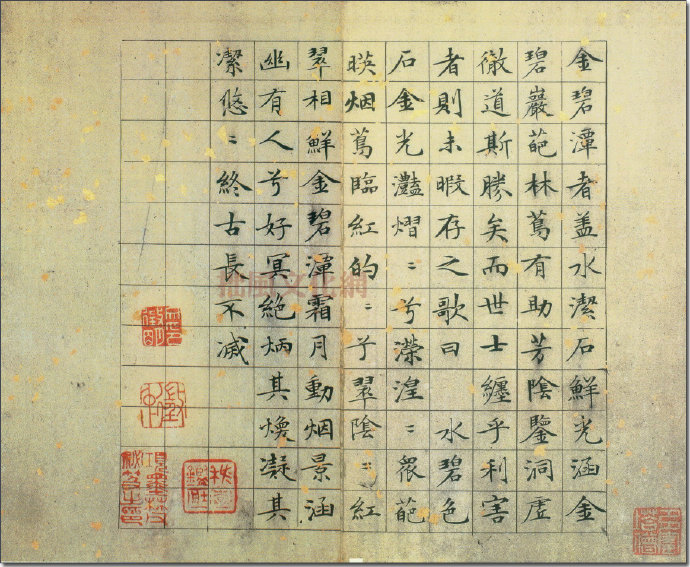 金碧潭者盖水潔石鮮光涵金
碧巖葩林蔦有助芳陰鑒洞虛
徹道斯勝矣而世士纏乎利害
者則未暇存之歌曰 水碧色
石金光灩熠〻兮濚湟〻衆葩
暎烟蔦臨紅的〻兮翠陰〻紅
翠相鮮金碧潭霜月動烟景涵
幽有人兮好冥絶炳其煥凝其
潔悠〻終古長不滅
文化網